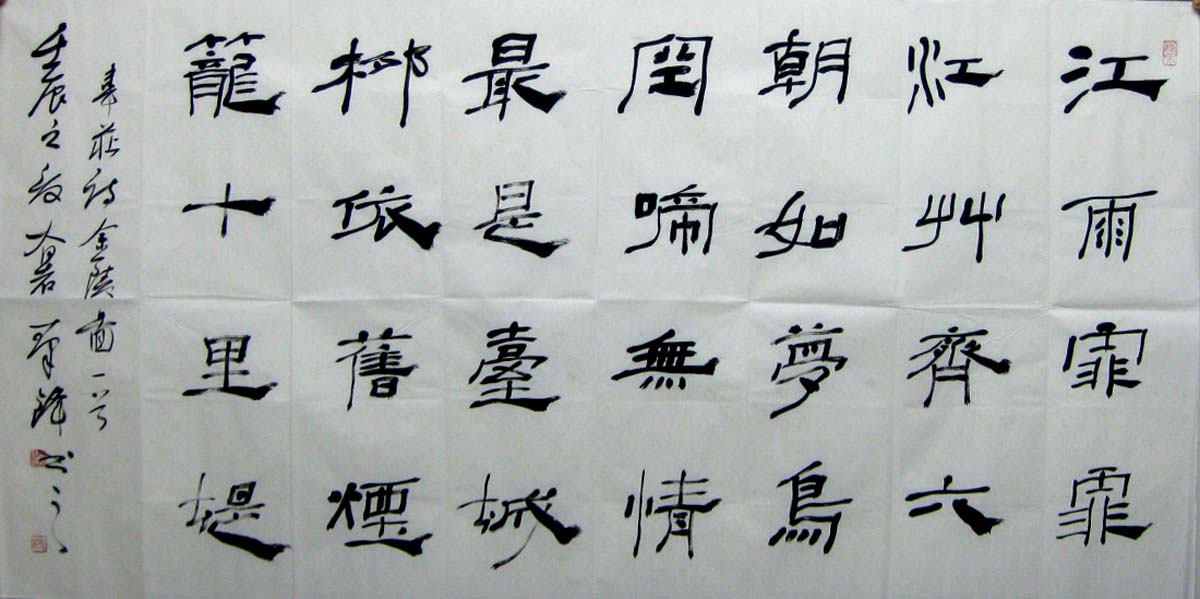 江雨霏霏
江艸齊六
朝如夢鳥
空啼無情
最是臺城
柳依舊煙
籠十里堤
韋莊詩金陵圖一首
壬辰之夏大暑书之